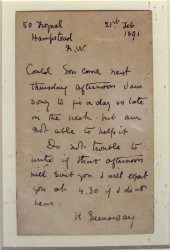 50 Frognal 21st Feb
Hampstead 1891
N.W.
Could you come next
Thursday afternoon I am
sorry to fix a day so late
in the week but am
not able to help it
Do not trouble to
write if that afternoon
will suit you I will expect
you at 4.30 if I do not
hear.
K Greenaway